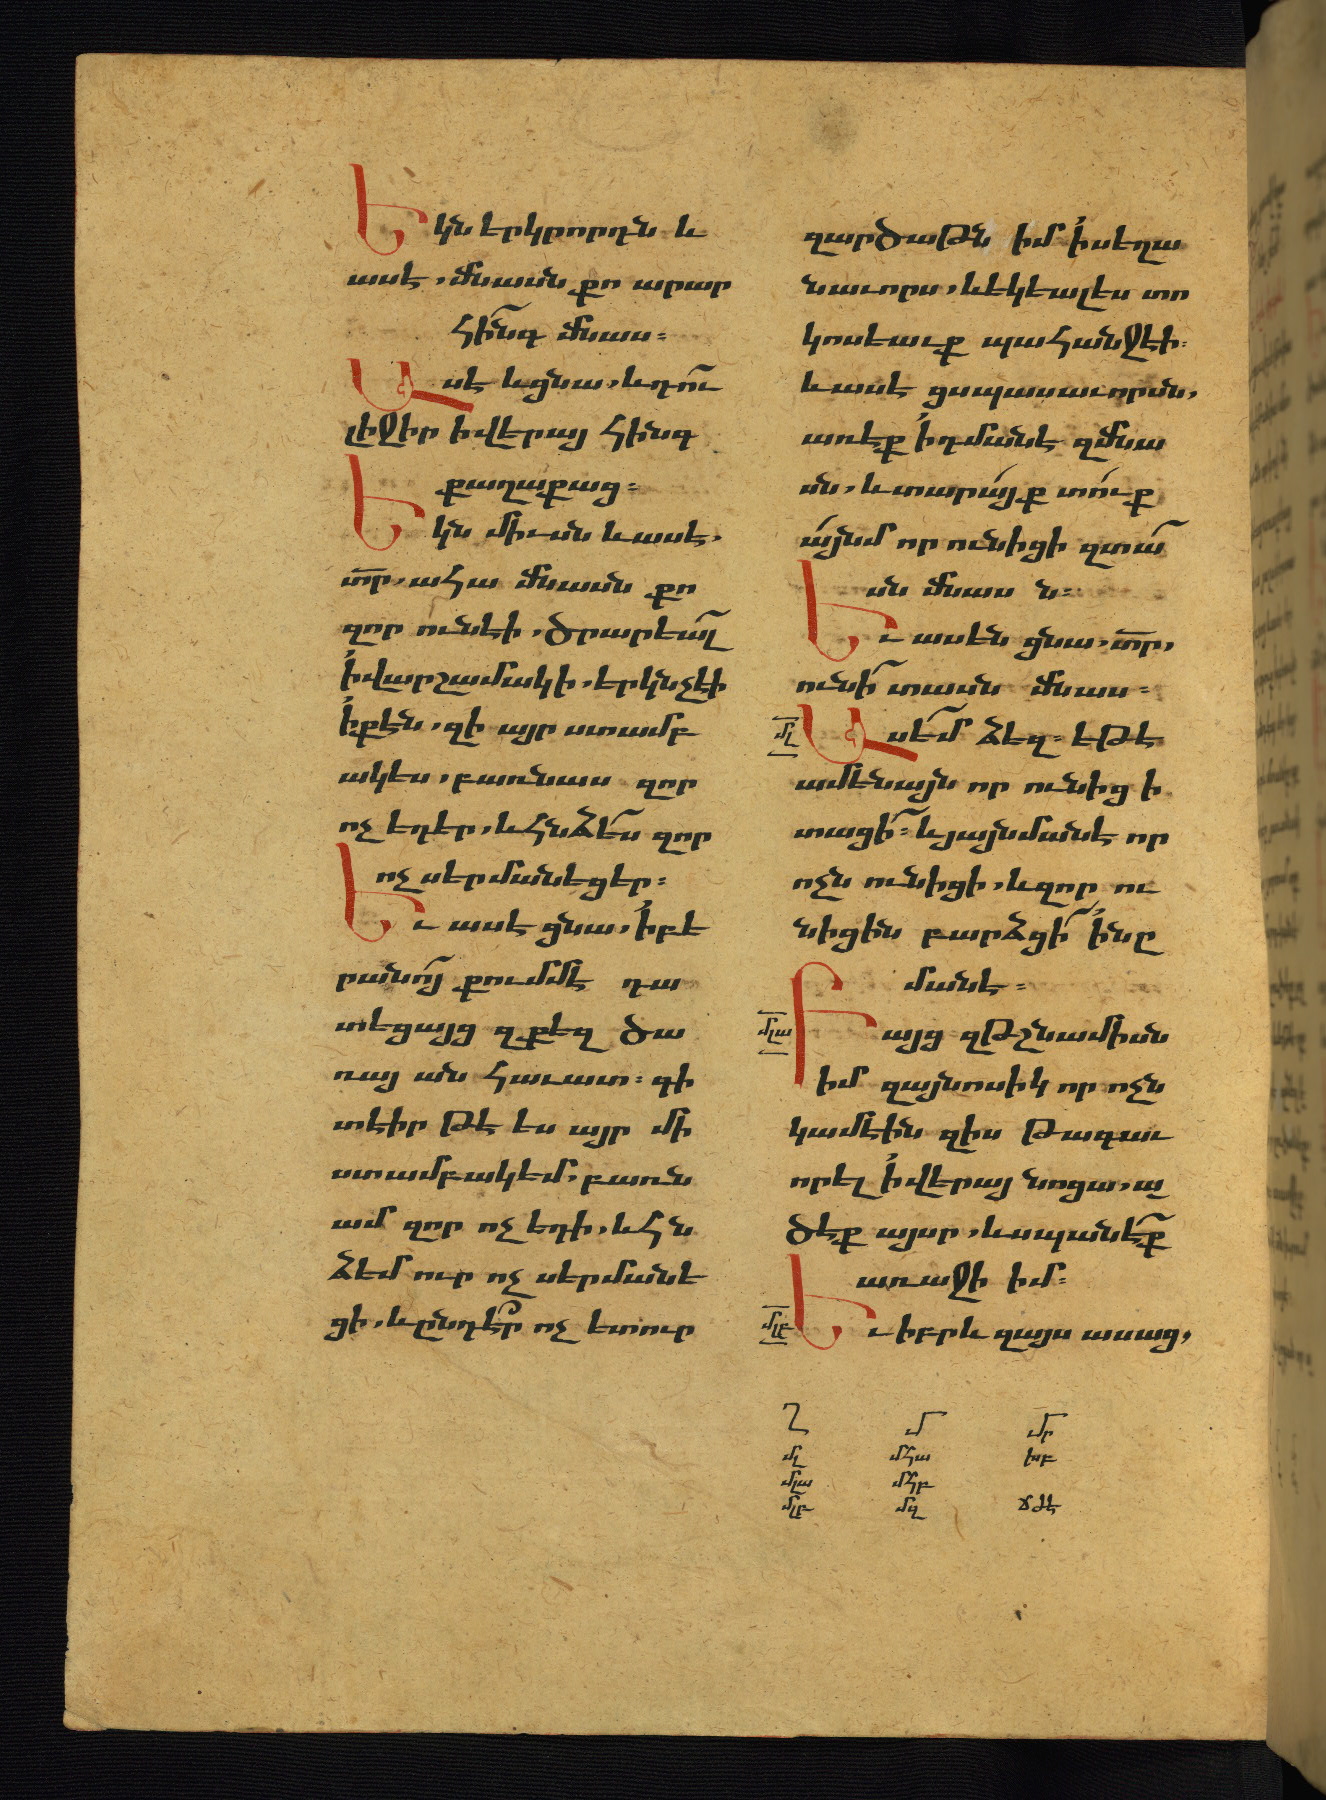 Եկն երկրորդն և
ասէ, մնասն քո արար
հինգ մնաս։
Ասէ ևցնա, ևդու
լիջիր իվերայ հինգ
քաղաքաց։
Եկն միւսն ևասէ,
տր, ահա մնասն քո
զոր ունէի, ծրարեալ
իվարշամակի, երկնչէի
իքէն, զի այր ստամբ
ակես, բառնաս զոր
ոչ եդեր, ևհնձես զոր
ոչ սերմանեցեր։
Եւ ասէ ցնա, իբե
րանոյ քումմէ դա
տեցայց զքեզ ծա
ռայ ան հաւատ։ գի
տէիր թէ ես այր մի
ստամբակեմ, բառն
ամ զոր ոչ եդի, ևհն
ձեմ ուր ոչ սերմանե
ցի, ևընդէր ոչ ետուր
զարծաթն իմ իսեղա
նաւորս, ևեկեալես տո
կոսեաւք պահանջէի։
ևասէ ցսպասաւորսն,
առէք իդմանէ զմնա
սն, ևտարայք տուք
այնմ որ ունիցի զտա
սն մնաս ն։
Եւ ասեն ցնա, տր,
ունի տասն մնաս։
մլ
Ասեմ ձեզ։ եթէ
ամենայն որ ունիցի
տացի։ ևյայնմանէ որ
ոչն ունիցի, ևզոր ու
նիցին բարձցի ինը
մանէ։
մլա
Բայց զթշնամիսն
իմ զայնոսիկ որ ոչն
կամէին զիս թագաւ
որել իվերայ նոցա, ա
ծէք այսր, ևսպանէք
առաջի իմ։
մլբ
Եւ իբրև զայս ասաց,
Ղ մ մր
մլ մհա խբ
մլա մհբ
մլբ մզ ճժէ